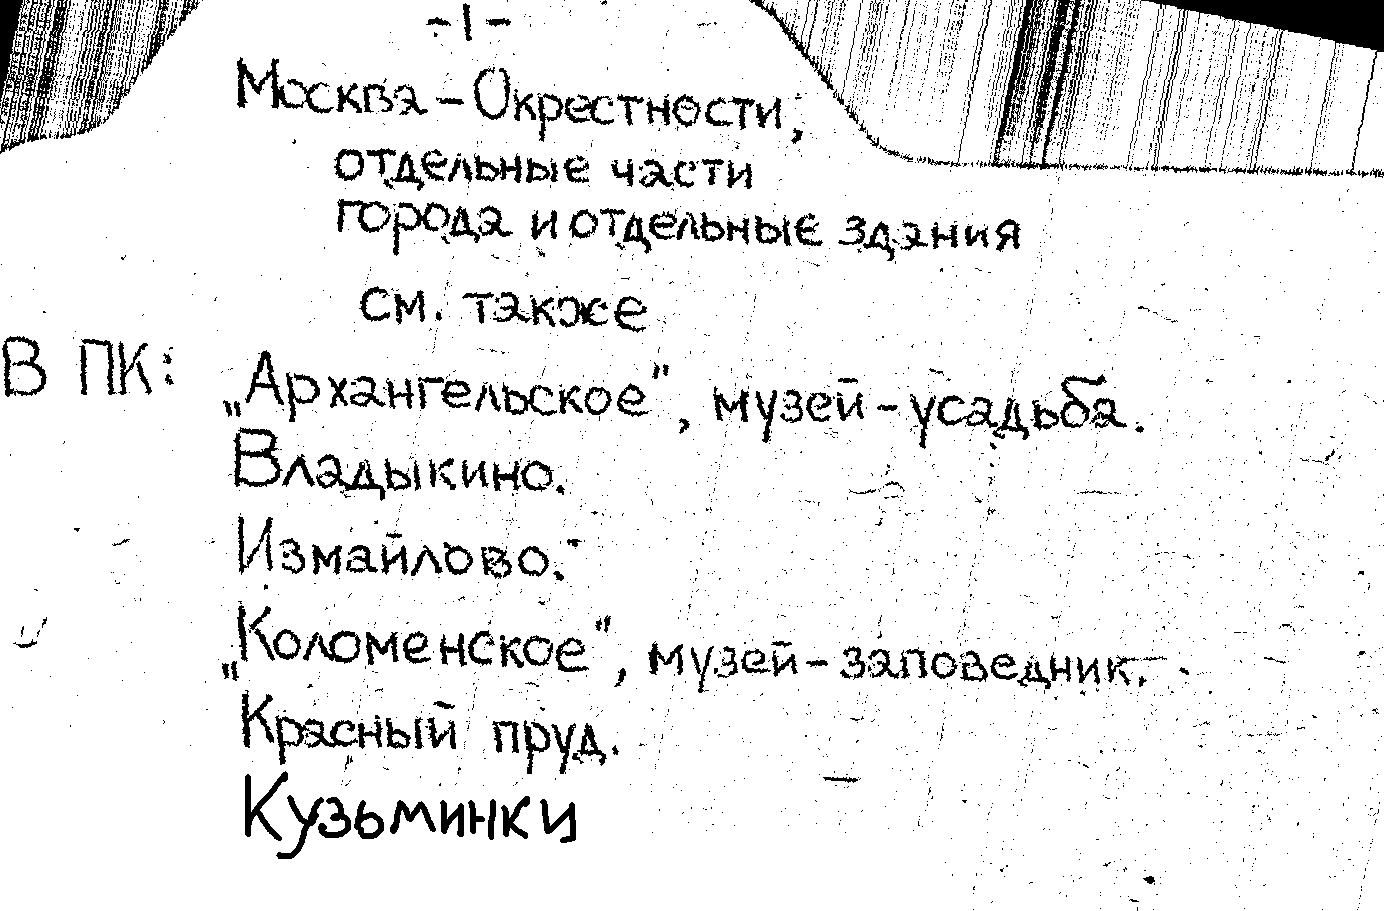 -1-
Москва - Окрестности,
отдельные части
города и отдельные здания
см. также
В ПК: „Архангельское", музей-усадьба.
Владыкино.
Измайлово.
„Коломенское", музей-заповедник.
Красный пруд.
Кузьминки